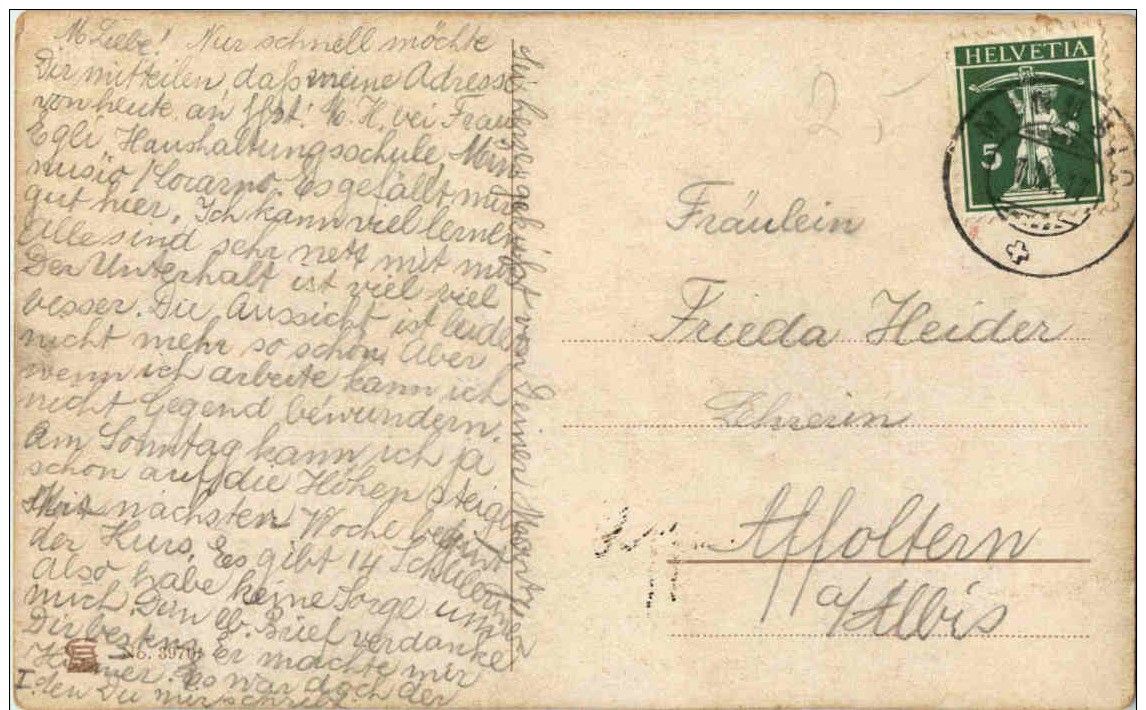 M Liebe! Nur schnell möchte
Dir mitteilen, daß meine Adresse
von heute an ist: M. H. bei Frau
Egli, Haushaltungsschule, Min
nusio / Locarno. Es gefällt mir
gut hier. Ich kann viel lernen
Alle sind sehr nett mit mir
Der Unterhalt ist viel viel
besser. Die Aussicht ist leider
nicht mehr so schön. Aber
wenn ich arbeite kann ich
nicht Gegend bewundern.
Am Sonntag kann ich ja
schon auf die Höhen steigen
nächsten Woche beginnt
der Kurs. Es gibt 14 Schülerinnen
also habe keine Sorge um
mich. Dein lb. Brief verdanke
Dir bestens. Er machte mir
Es war doch der
I. den Du mir schreibst
Sei herzl. geküsst von Deiner
HELVETIA
5
Fräulein
Frieda Heider
Lehrerin
Affoltern
a/Albis